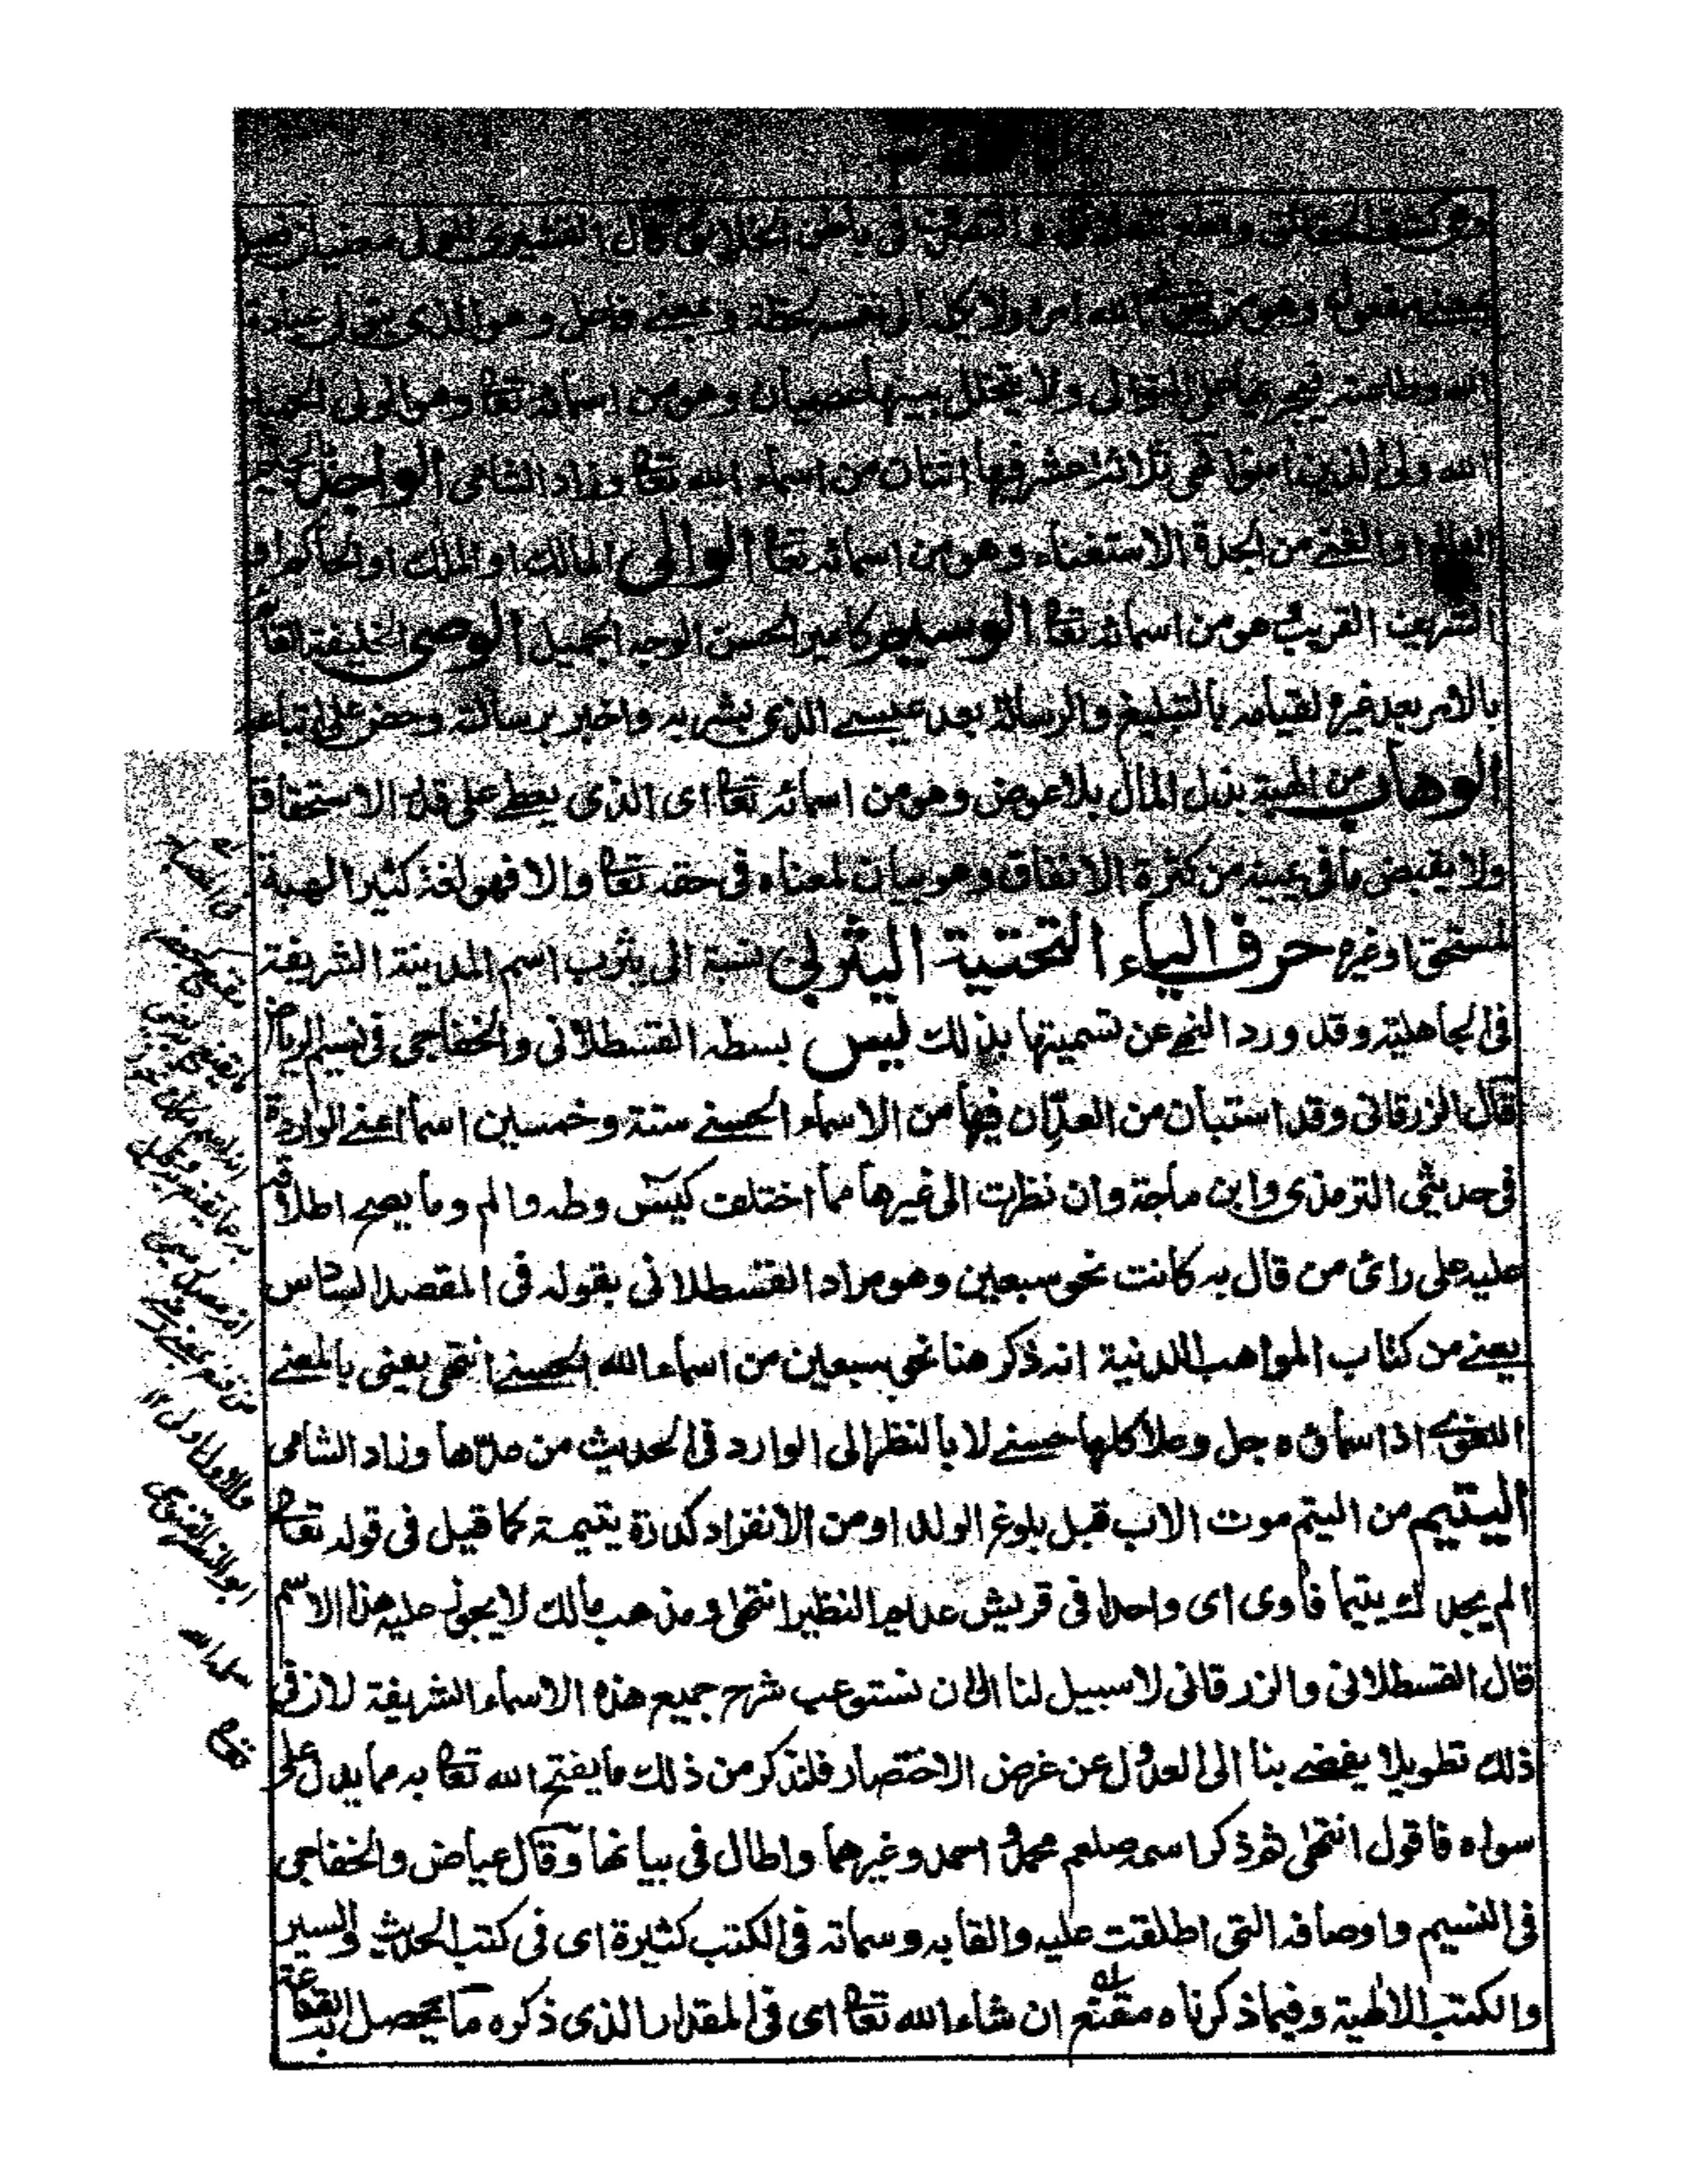 وهو كشف الحقائق وقطع العلائق والتصرف فى باطن الخلائق قال القشيرى للولى معنيان فعيل
بمعنى مفعول وهو من يتولى الله امره ولا يكله الى نفسه لحظة وبمعنى فاعل وهو الذى يتولى عبادة
الله وطاعته فيجريها على التوالى ولا يتخلل بينها عصيان وهو من اسمائه تعا وهو الولى الحميد
الله ولى الذين امنوا فهى ثلاثة عشر فيها اثنان من اسماء الله تعا وزاد الشامى الواجد
العالم او الغنى من الجدة الاستغناء وهو من اسمائه تعا الوالى المالك او الملك او الحاكم او
الشريف القريب هو من اسمائه تعا الوسيم كامير الحسن الوجه الجميل الوصى الخليفة القائم
بالامر بعد غيره لقيامه بالتبليغ والرسالة بعد عيسى الذى بشر به واخبر برسالته وحض على اتباعه
الوهاب من الهبة بذل المال بلا عوض وهو من اسمائه تعا اى الذى يعطى على قدر الاستحقاق
ولا يقبض ما فى يمينه من كثرة الانفاق وهو بيان لمعناه فى حقه تعا والا فهو لغة كثير الهبة
لمستحق او غيره حرف الياء التحتية اليثربى نسبة الى يثرب اسم المدينة الشريفة
فى الجاهلية وقد ورد النهى عن تسميتها بذلك ليس بسطه القسطلانى والخفاجى فى نسيم الرياض
قال الزرقانى وقد استبان من العد ان فيها من الاسماء الحسنى ستة وخمسين اسما اعنى الواردة
فى حديثى الترمذى وابن ماجة وان نظرت الى غيرها مما اختلف كيس وطه والم وما يصح اطلاقه
عليه على رائ من قال به كانت نحو سبعين وهو مراد القسطلانى بقوله فى المقصد السادس
يعنى من كتاب المواهب اللدنية انه ذكر هنا نحو سبعين من اسماء الله الحسنى انتهى يعنى بالمعنى
اللغوى اذ اسماؤه جل وعلا كلها حسنى لا بالنظر الى الوارد فى الحديث من عدها وزاد الشامى
اليتيم من اليتم موت الاب قبل بلوغ الولد او من الانفراد كدرة يتيمة كما قيل فى قوله تعا
الم يجدك يتيما فاوى اى واحدا فى قريش عديم النظير انتهى ومذهب مالك لا يجوز عليه هذا الاسم
قال القسطلانى والزرقانى لا سبيل لنا الى ان نستوعب شرح جميع هذه الاسماء الشريفة لان فى
ذلك تطويلا يفضى بنا الى العدول عن غرض الاختصار فلنذكر من ذلك ما يفتح الله تعا به مما يدل على
سواه فاقول انتهى ثم ذكر اسمه صلعم محمد و احمد وغيرهما واطال فى بيانها وقال عياض والخفاجى
فى النسيم واوصافه التى اطلقت عليه والقابه وسماته فى الكتب كثيرة اى فى كتب الحديث والسير
والكتب الالهية وفيما ذكرناه مقنع ان شاء الله تعا اى فى المقدار الذى ذكره ما يحصل به القناعة